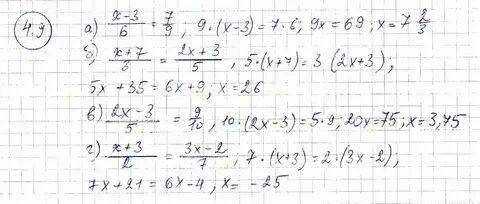 4.9 а) (x-3)/6 = 7/9; 9·(x-3)=7·6; 9x=69; x=7 2/3
б) (x+7)/3 = (2x+3)/5, 5·(x+7)=3(2x+3);
5x+35=6x+9; x=26
в) (2x-3)/5 = 9/10, 10·(2x-3)=5·9, 20x=75; x=3,75
г) (x+3)/2 = (3x-2)/7; 7·(x+3)=2·(3x-2);
7x+21=6x-4, x=-25